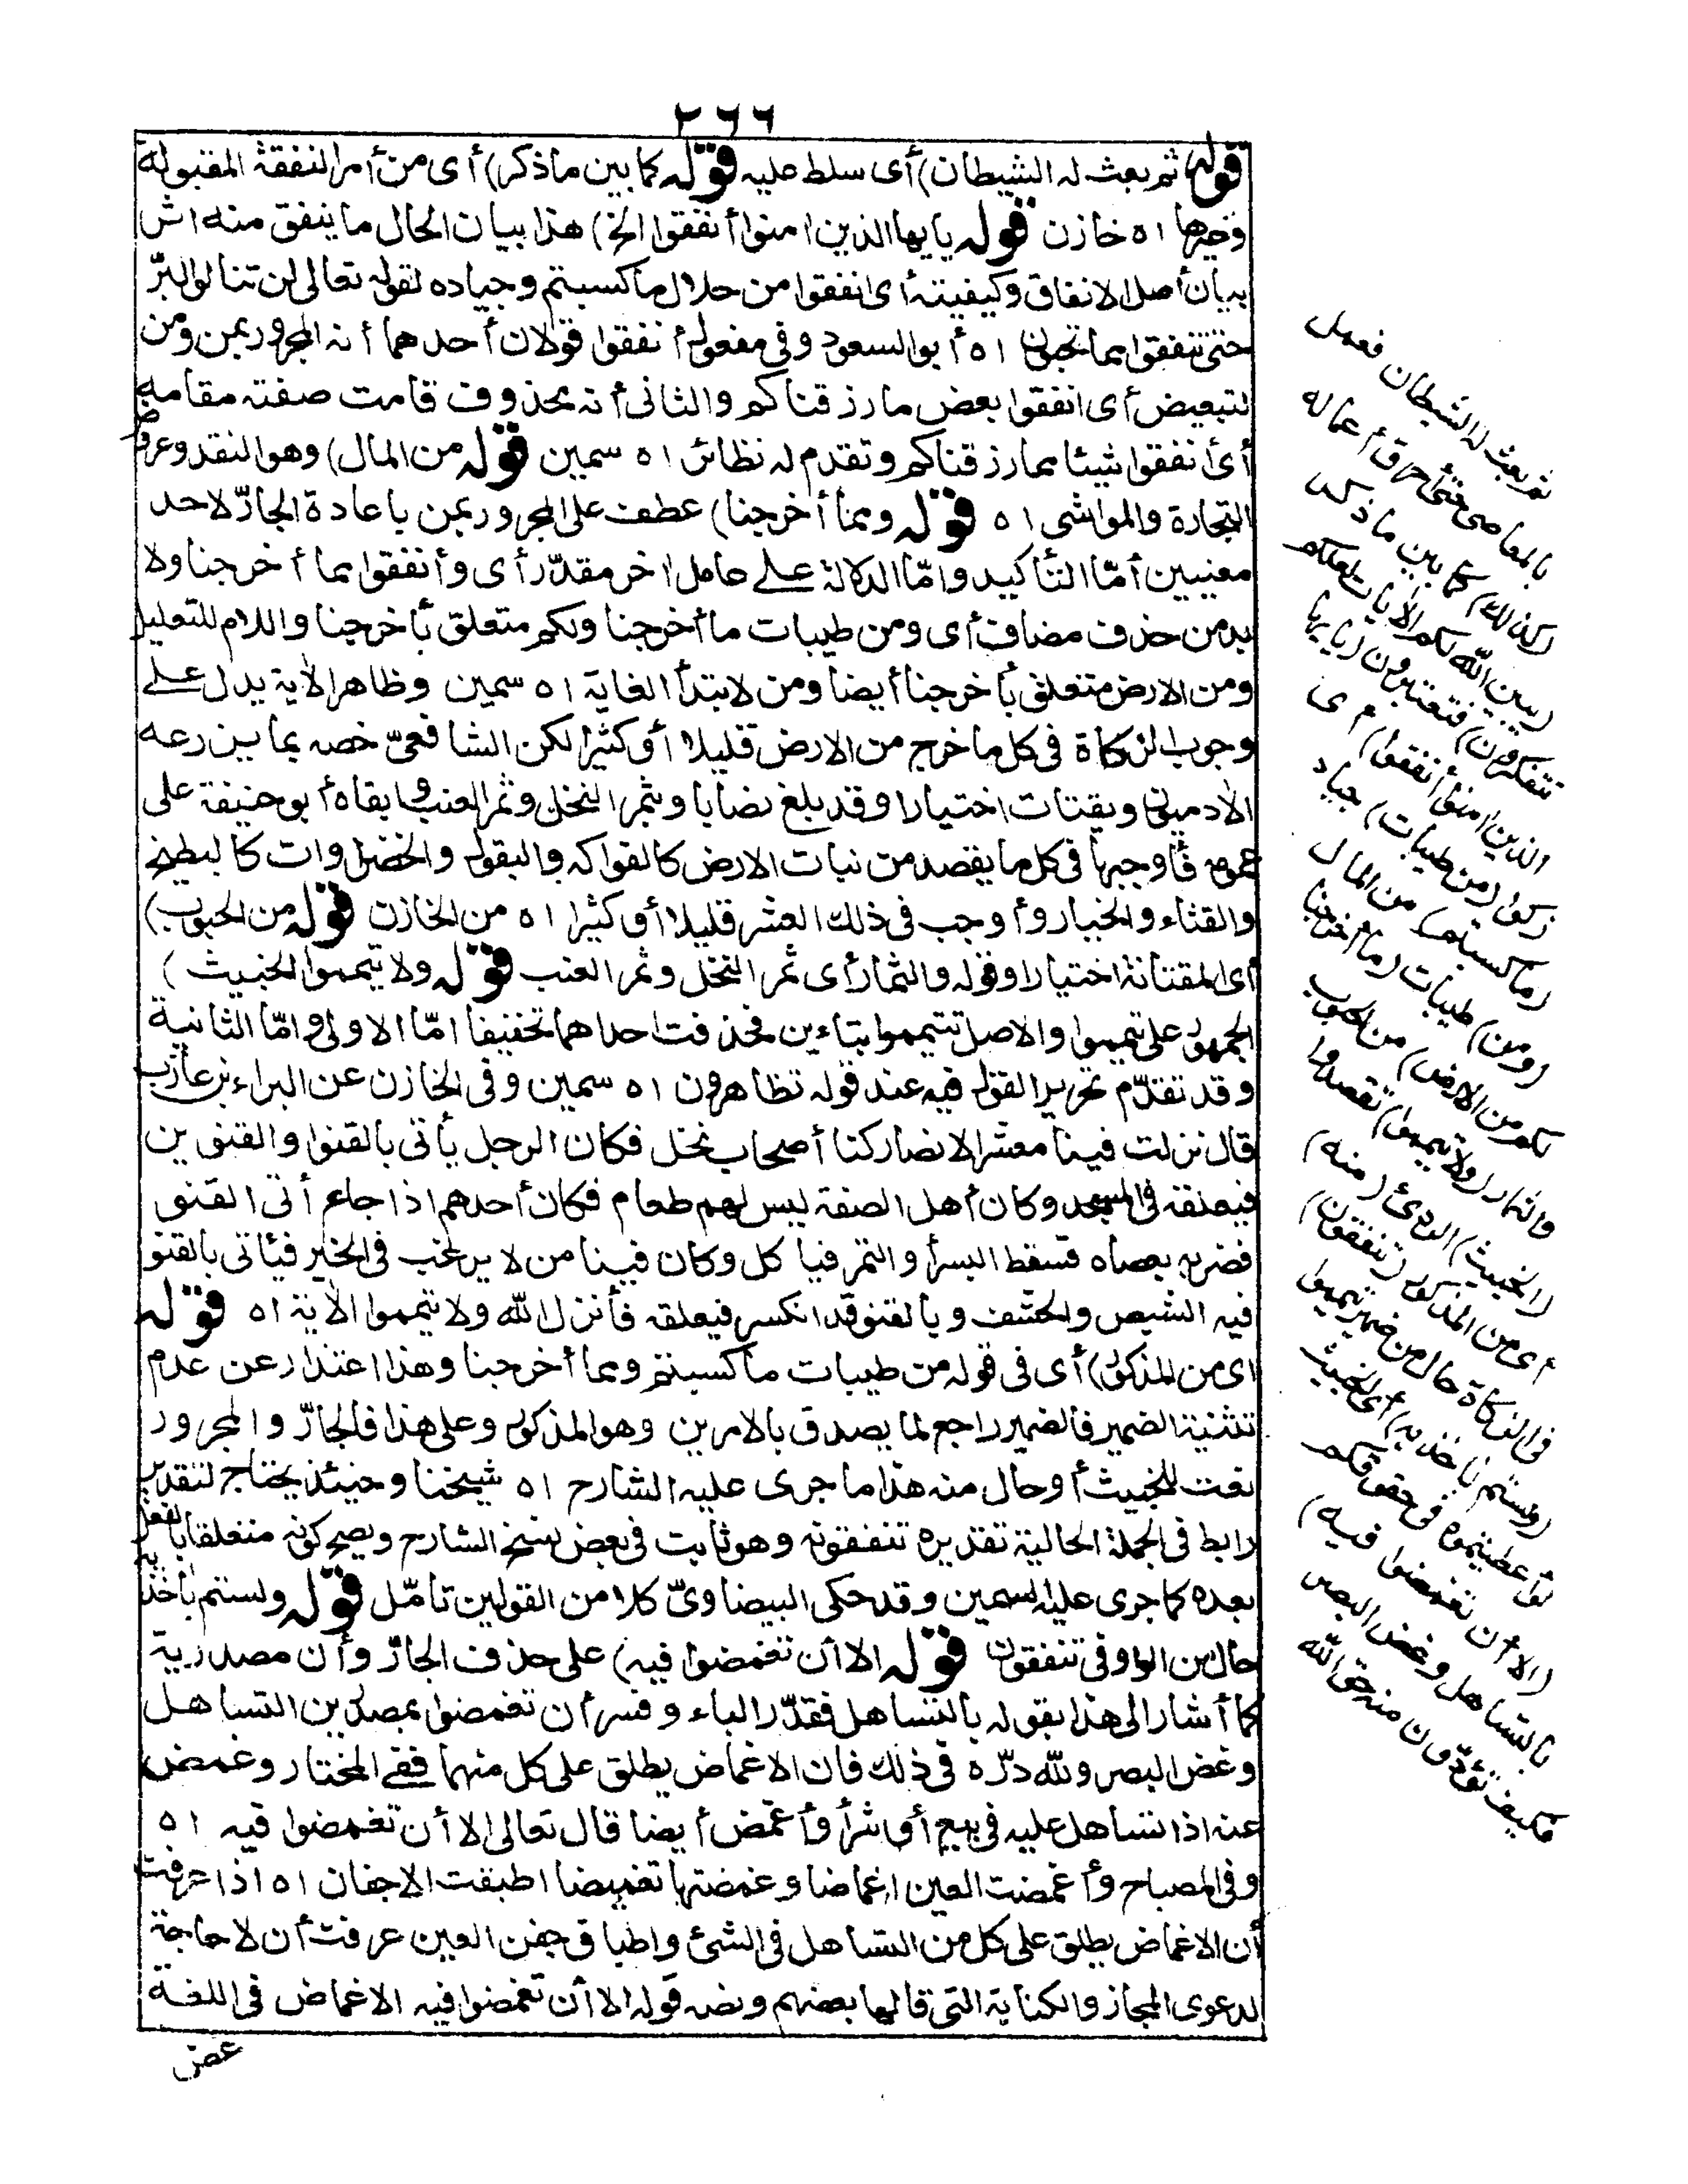 ٢٦٦
قوله ثم بعث له الشيطان) أى سلط عليه قوله كما بين ما ذكر) أى من أمر النفقة المقبولة
وغيرها اه خازن قوله يايها الذين امنوا أنفقوا الخ) هذا بيان لحال ما ينفق منه اثر
بيان أصل الانفاق وكيفيته أى انفقوا من حلال ما كسبتم وجياده لقوله تعالى لن تنالوا البرّ
حتى تنفقوا مما تحبون اه أبو السعود وفى مفعول أنفقوا قولان أحدهما أنه المجرور بمن ومن
لتبعيض أى انفقوا بعض ما رزقناكم والثانى أنه محذوف قامت صفته مقامه
أى أنفقوا شيئا مما رزقناكم وتقدم له نظائر اه سمين قوله من المال) وهو النقد وعروض
التجارة والمواشى اه قوله ومما أخرجنا) عطف على المجرور بمن باعادة الجارّ لاحد
معنيين أمّا التأكيد وامّا الدلالة على عامل اخر مقدّر أى وأنفقوا مما أخرجنا ولا
بد من حذف مضاف أى ومن طيبات ما أخرجنا ولكم متعلق بأخرجنا واللام للتعليل
ومن الارض متعلق بأخرجنا أيضا ومن لابتدأ الغاية اه سمين وظاهر الأية يدل على
وجوب الزكاة فى كل ما خرج من الارض قليلا أو كثيرا لكن الشافعىّ خصه بما يزرعه
الأدميون ويقتات اختيارا وقد بلغ نصابا وبثمر النخل وثمر العنب وابقاه أبو حنيفة على
عمومه فأوجبها فى كل ما يقصد من نبات الارض كالفواكه والبقول والخضراوات كالبطيخ
والقثاء والخيار وأوجب فى ذلك العشر قليلا أو كثيرا اه من الخازن قوله من الحبوب)
أى المقتاتة اختيارا وقوله والثمار أى ثمر النخل وثمر العنب قوله ولا تيمموا الخبيث)
الجمهور على تيمموا والاصل تتيمموا بتاءين فحذفت احداهما تخفيفا امّا الاولى وامّا الثانية
وقد تقدّم تحرير القول فيه عند قوله تظاهرون اه سمين وفى الخازن عن البراء بن عازب
قال نزلت فينا معشر الانصار كنا أصحاب نخل فكان الرجل يأتى بالقنوا والقنوين
فيعلقه فى المسجد وكان أهل الصفة ليس لهم طعام فكان أحدهم اذا جاع أتى القنو
فضربه بعصاه فسقط البسر أو التمر فيأكل وكان فينا من لا يرغب فى الخير فيأتى بالقنو
فيه الشيص والحشف وبالقنو قد انكسر فيعلقه فأنزل الله ولا تيمموا الأية اه قوله
اى من المذكور) أى فى قوله من طيبات ما كسبتم ومما أخرجنا وهذا اعتذار عن عدم
تثنية الضمير فالضمير راجع لما يصدق بالامرين وهو المذكور وعلى هذا فالجارّ والمجرور
نعت للخبيث أو حال منه هذا ما جرى عليه الشارح اه شيخنا وحينئذ يحتاج لتقدير
رابط فى الجملة الحالية تقديره تنفقونه وهو ثابت فى بعض نسخ الشارح ويصح كونه متعلقا بالفعل
بعده كما جرى عليه السمين وقد حكى البيضاوىّ كلا من القولين تأمّل قوله ولستم بأخذيه
حال من الواو فى تنفقون قوله الا أن تغمضوا فيه) على حذف الجارّ وأن مصدرية
كما أشار الى هذا بقوله بالتساهل فقدّر الباء وفسر أن تغمضوا بمصدرين التساهل
وغض البصر ولله درّه فى ذلك فان الاغماض يطلق على كل منهما ففى المختار وغمض
عنه اذا تساهل عليه فى بيع أو شرأ وأغمض أيضا قال تعالى الا أن تغمضوا فيه اه
وفى المصباح وأغمضت العين اغماضا وغمضتها تغميضا اطبقت الاجفان اه اذا عرفت
أن الاغماض يطلق على كل من التساهل فى الشئ واطباق جفن العين عرفت أن لا حاجة
لدعوى المجاز والكناية التى قالها بعضهم ونصه قوله الا أن تغمضوا فيه الاغماض فى اللغة
غض
ثم بعث له الشيطان فعمل
بالمعاصى حتى أحرق أعماله
(كذلك) كما بين ما ذكر
(يبين الله لكم الأيات لعلكم
تتفكرون) فتعتبرون (يايها
الذين امنوا أنفقوا) أى
زكوا (من طيبات) جياد
(ما كسبتم) من المال
(ومن) طيبات (ما أخرجنا
لكم من الارض) من الحبوب
والثمار (ولا تيمموا) تقصدوا
(الخبيث) الردئ (منه)
أى من المذكور (تنفقون)
فى الزكاة حال من ضمير تيمموا
(ولستم بأخذيه) أى الخبيث
لو أعطيتموه فى حقوقكم
(الا أن تغمضوا فيه)
بالتساهل وغض البصر
فكيف تؤدّون منه حق الله